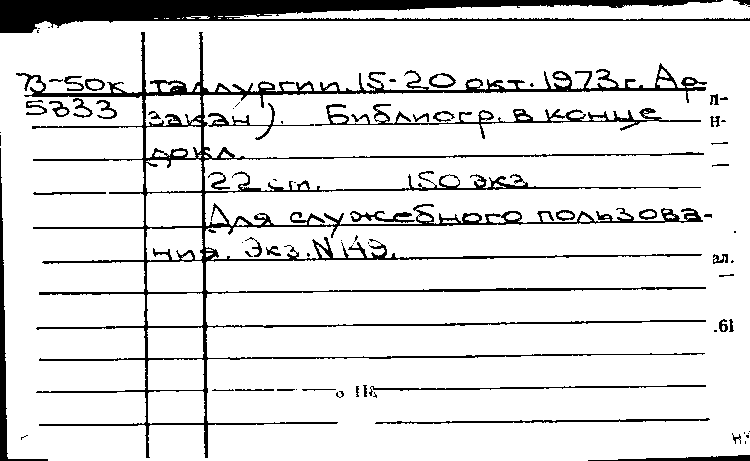 73-50к таллургии. 15-20 окт. 1973 г. Ар-
5333 закан). Библиогр. в конце
докл.
22 см. 150 экз.
Для служебного пользова-
ния. Экз. N 149.
л-
н-
ал.
.61